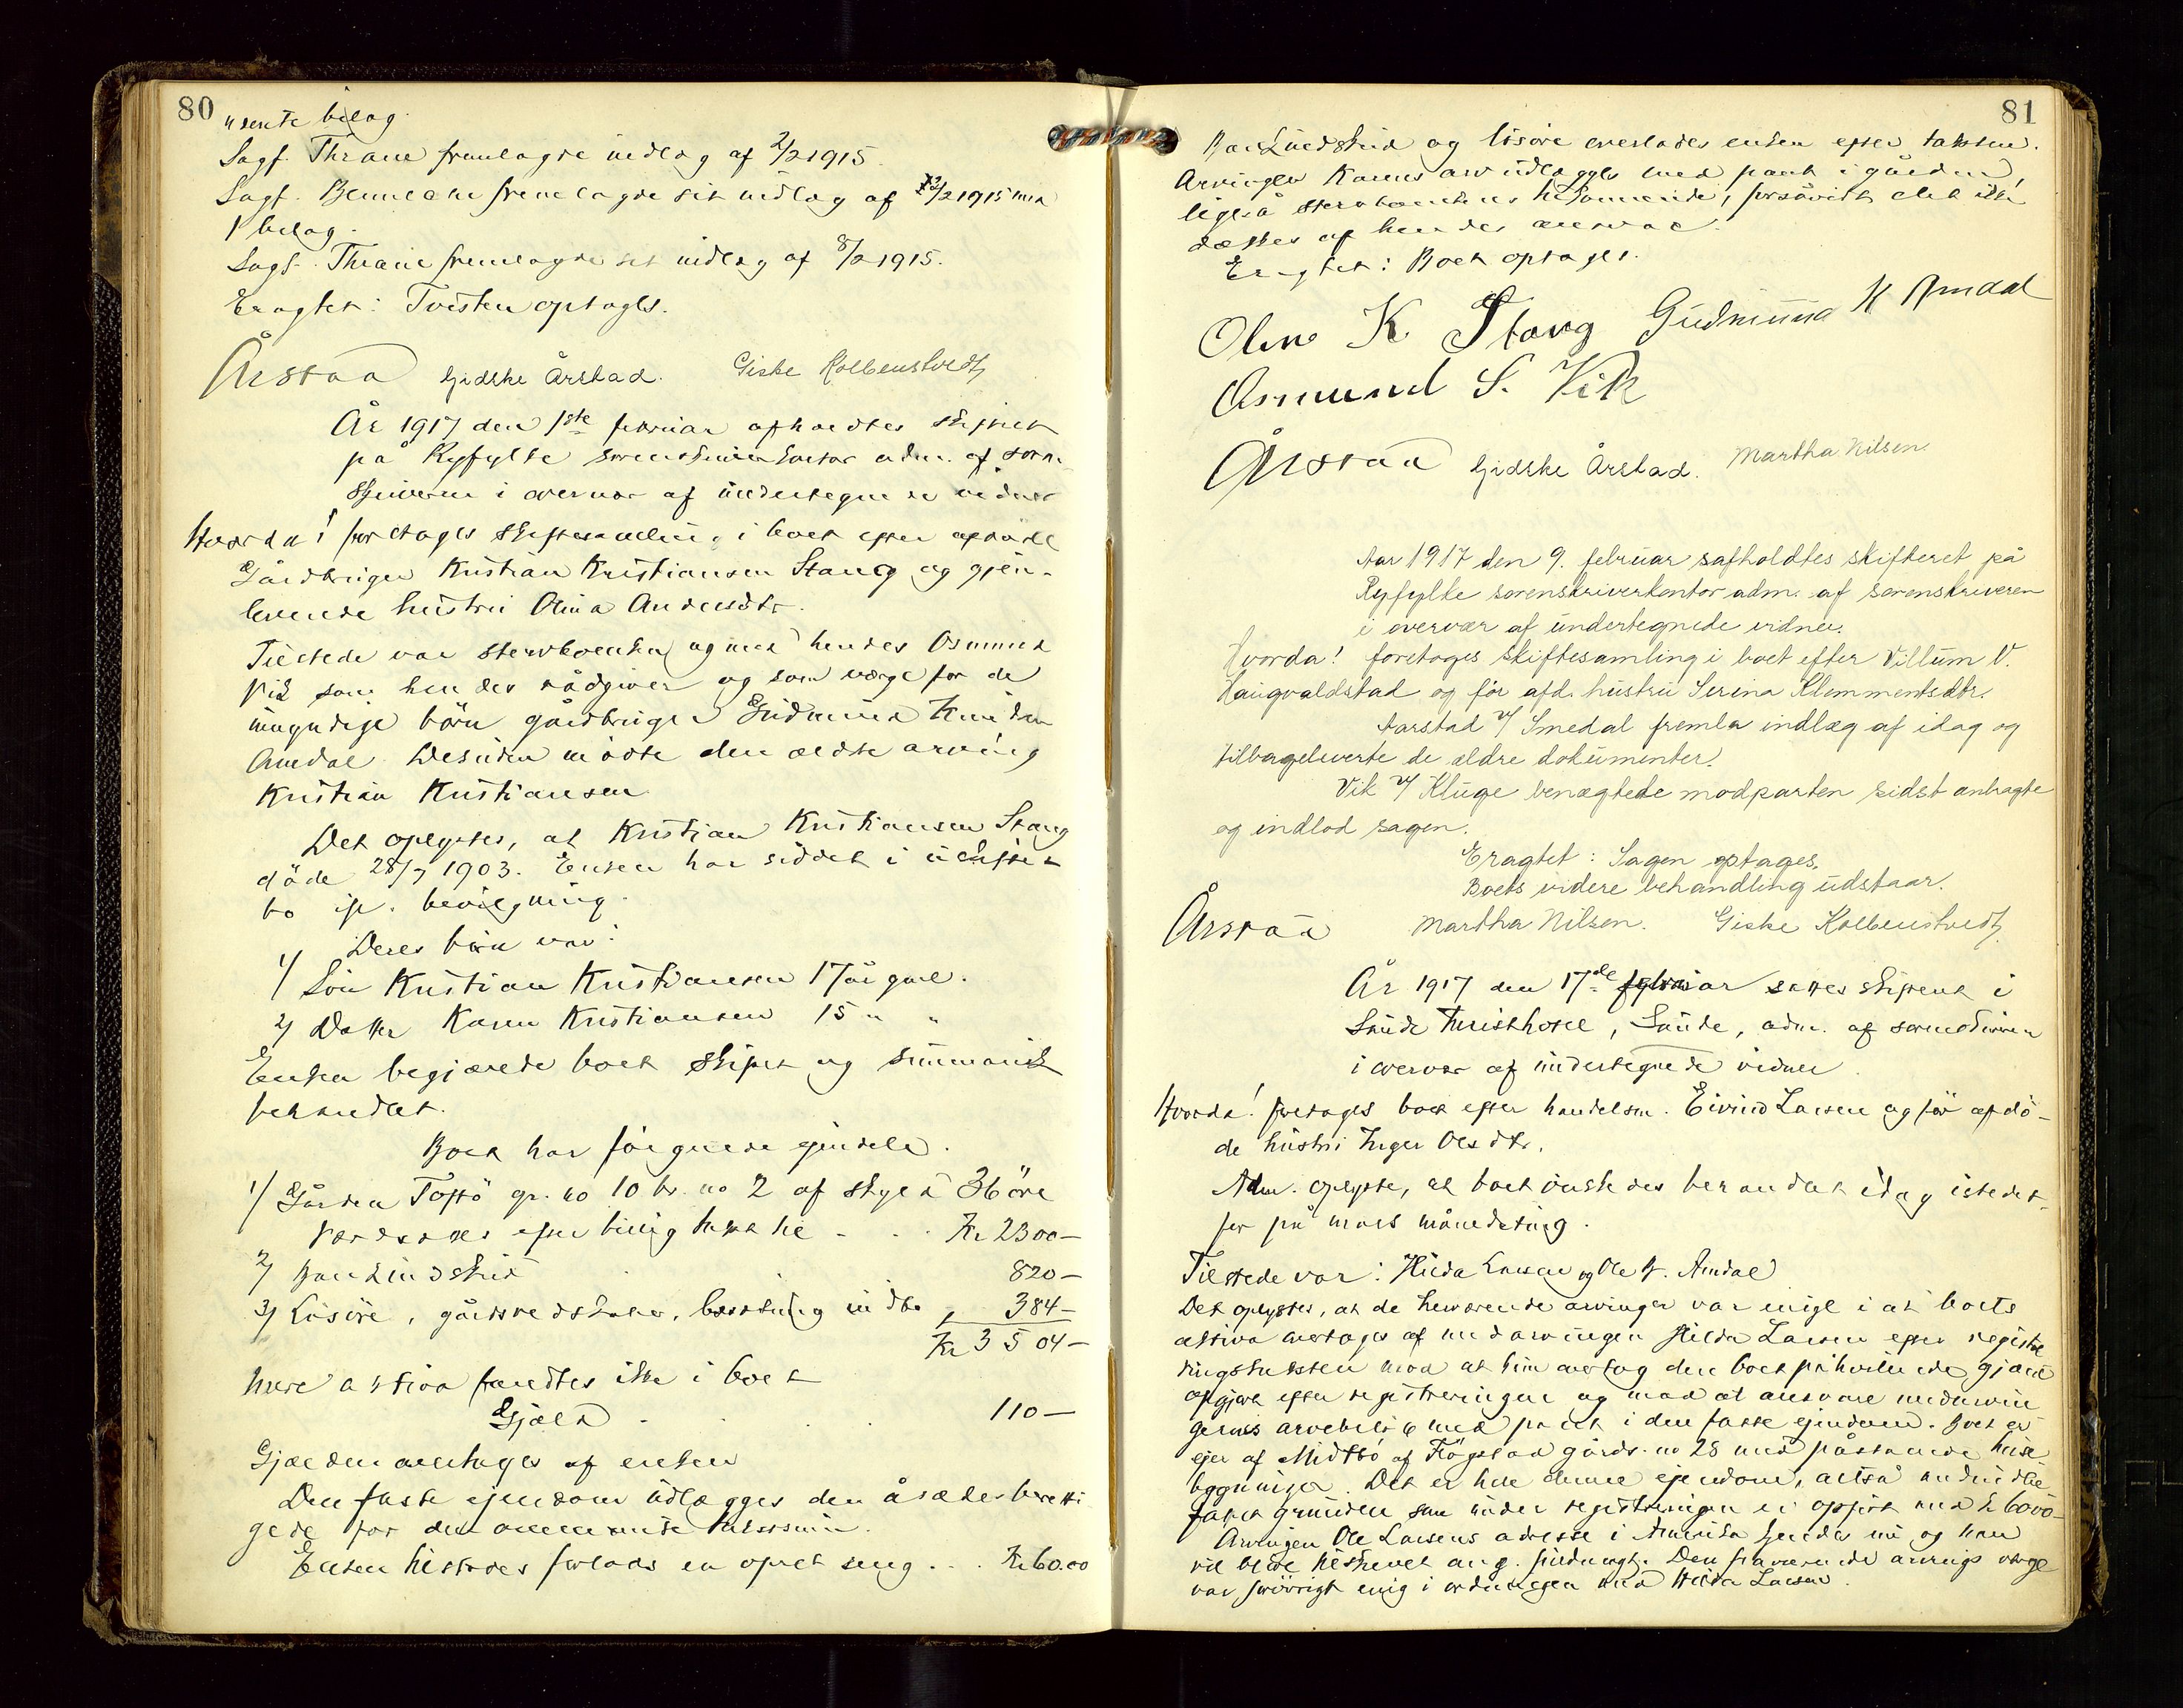 80
nente bilag.
Sagf. Thrane fremlagde indlæg af 2/2 1915.
Sagf. fremlagde sit indlæg af 12/2 1915 med
1 bilag.
Sagf. Thrane fremlagde sit indlæg af 8/2 1915.
Eragtet: Tvisten optages.
Årstad Gidske Årstad. Giske Kolbenstvedt
År 1917 den 1ste februar afholdtes skifteret
på Ryfylke sorenskriverkontor adm. af soren-
skriveren i overvær af undertegnede vidner
Hvorda! foretages skiftesamling i boet efter afdøde
Gårdbruger Kristian Kristiansen Stang og gjen-
levende hustru Olina Andersdtr.
Tilstede var sterbboenken og med hendes Osmund
Vik som hendes rådgiver og som værge for de
umyndige børn gårdbruger Gudmund Knudsen
Amdal. Desuden mødte den ældste arving
Kristian Kristiansen
Det oplystes, at Kristian Kristiansen Stang
døde 28/7 1903. Enken har siddet i uskiftet
bo if. bevilgning.
Deres børn var:
1/ Søn Kristian Kristiansen 17 år gml.
2/ Datter Karen Kristiansen 15 " "
Enken begjærede boet skiftet og summarisk
behandlet.
Boet har følgende eiendele.
1/ Gården Toftø gr. no 10 br. no 2 af skyld 36 øre
værdsættes efter billig takst til - . . Kr 2300 –
2/ Bankindskud 820 –
3/ Løsøre, gårdsredskaber, besætning indbo 384 –
Kr 3504 –
Mere aktiva fandtes ikke i boet
Gjæld . . . 110 –
Gjælden overtages af enken
Den faste ejendom udlægges den åsædesberetti-
gede for den takstsum.
Enken tilstodes forlods en opret seng ... Kr 60.00
81
Bankindskud og løsøre overlades enken efter taksten.
Arvingen Karens arv udlægges med pant i gården,
ligeså sterbboenkens tilkommende, forsåvidt det ikke
dækkes af hendes ansvar.
Eragtet: Boet optages.
Oline K. Stang Gudmund K Amdal
Osmund S. Vik
Årstad Gidske Årstad. Martha Nilsen
Aar 1917 den 9. februar safholdtes skifteret på
Ryfylke sorenskriverkontor adm. af sorenskriveren
i overvær af undertegnede vidner.
Hvorda! foretoges skiftesamling i boet efter Villum V.
Haugvaldstad og før afd. hustru Serina Klemmentsdtr.
Aarstad v/ Smedal fremla indlæg af idag og
tilbageleverte de ældre dokumenter.
Vik v/ Kluge benægtede modparten sidst anbragte
og indlod sagen.
Eragtet: Sagen optages.
Boets videre behandling udstaar.
Årstad Martha Nilsen. Giske Kolbenstvedt
År 1917 den 17de februar sattes skifteret i
Saude Turisthotel, Saude, adm. af sorenskriveren
i overvær af undertegnede vidner
Hvorda! foretoges boet efter handelsm. Eivind Larsen og før afdø-
de hustru Inger Olsdtr.
Adm. oplyste, at boet ønskedes behandlet idag istedet-
for på marts månedsting.
Tilstede var: Hilda Larsen og Ole J. Amdal
Det oplystes, at de herværende arvinger var enige i at boets
aktiva overtages af medarvingen Hilda Larsen efter registre-
ringstaksten mod at hun overtog den boet påhvilende gjæld
opgjort efter registreringen og mod at ansvare medarvin
gernes arvebeløb med pant i den faste eiendom. Boet er
eier af Midtbø af Fløgstad gårds no 28 med påstående huse
bygninger. Det er hele denne ejendom, altså
grunden som under registreringen er opført med kr 6000 –
Arvingen Ole Larsens adresse i Amerika kjendes nu og han
vil blive tilskrevet ang. fuldmagt. Den fraværende arvings værge
var forøvrigt enig i ordningen med Hilda Larsen.